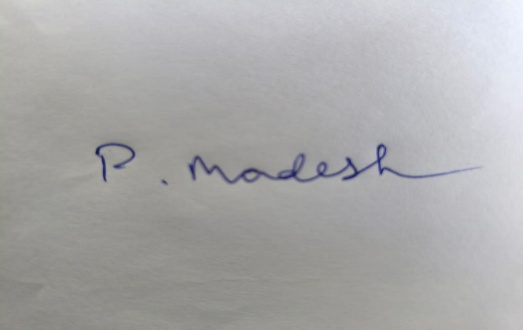 P. Madesh